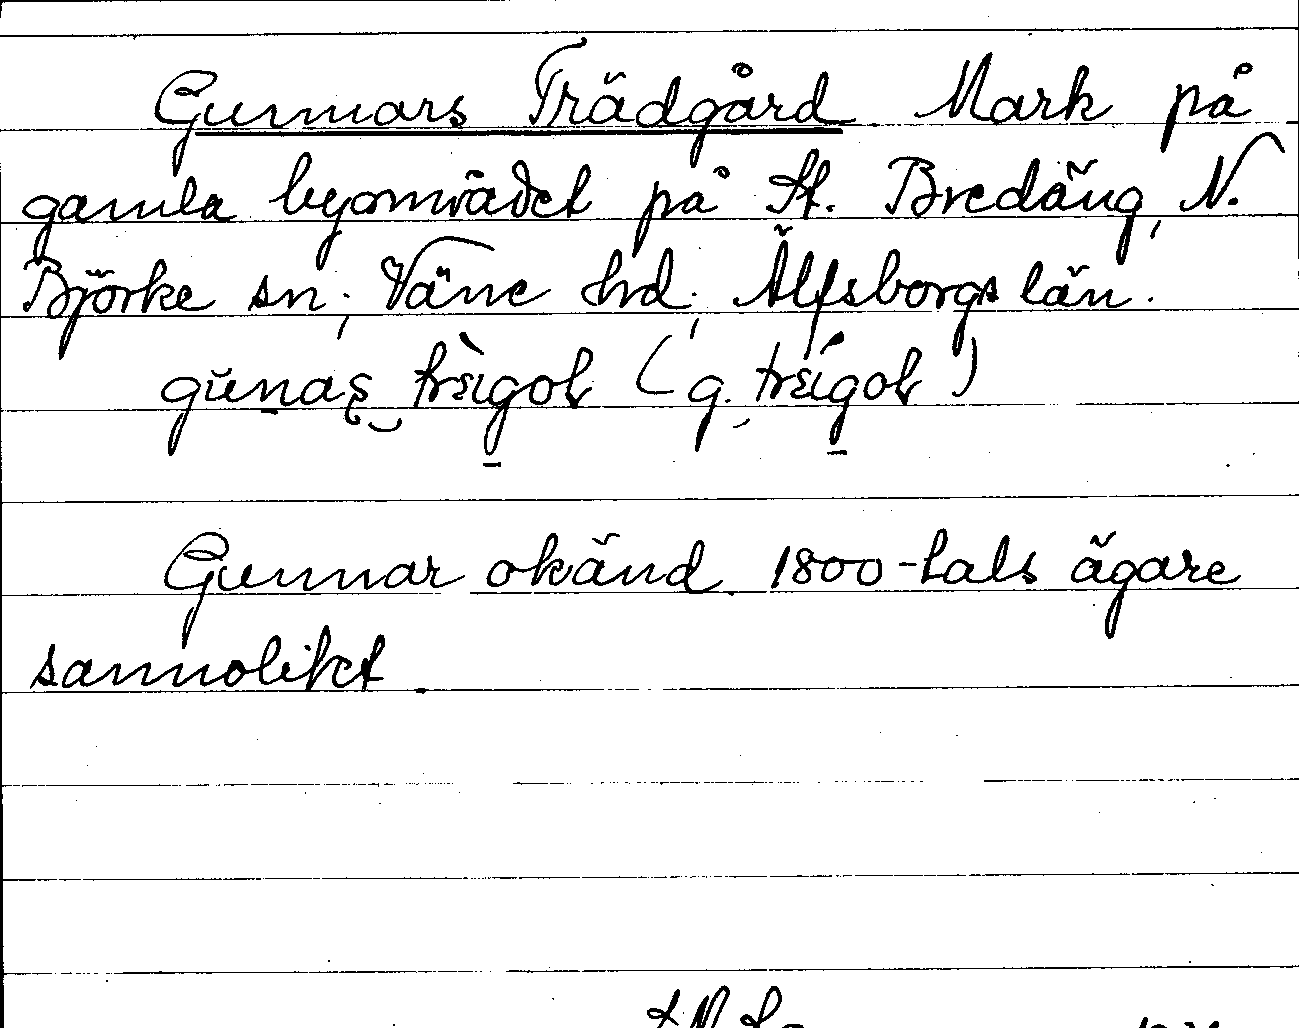 Gunnars Trädgård Mark på
gamla byområdet på St. Bredäng, N.
Björke sn; Väne hd; Älfsborgs län.
Gunnar okänd 1800-tals ägare
sannolikt.